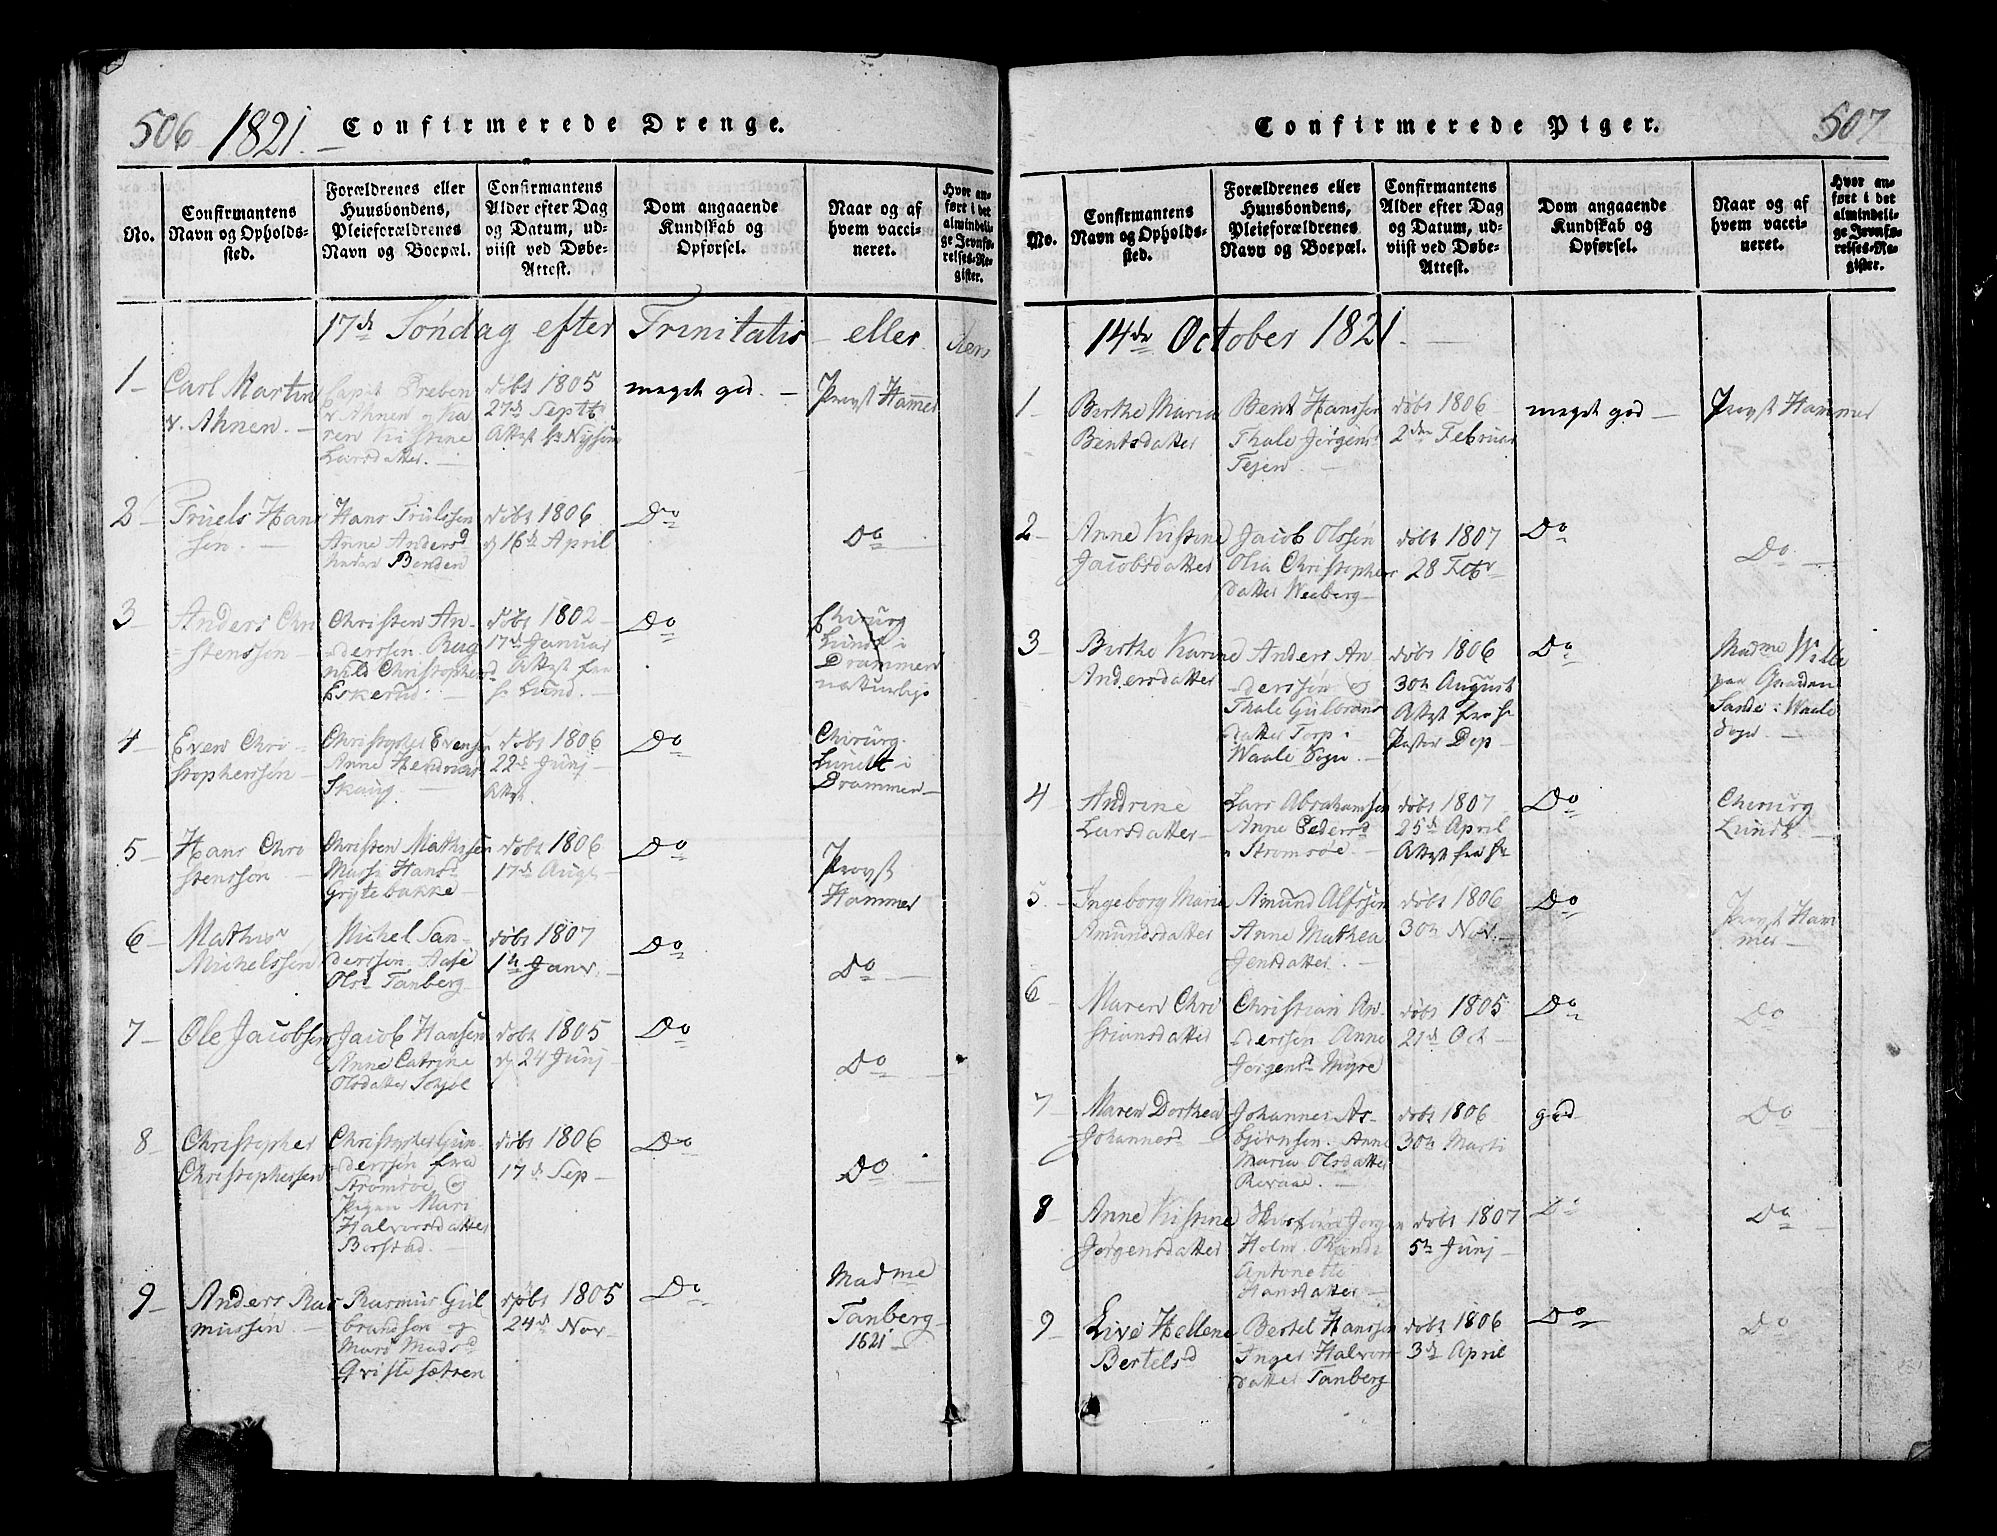 506 1821. Confirmerede Drenge.
No.
Confirmantens
Navn og Opholds-
sted.
Forældrenes eller
Huusbondens,
Pleieforældrenes
Navn og Boepæl.
Confirmantens
Alder efter Dag
og Datum, ud-
viist ved Døbe-
Attest.
Dom angaaende
Kundskab og
Opførsel.
Naar og af
hvem vacci-
neret.
Hvor an-
ført i det
almindeli-
ge Jevnfø-
relses-Re-
gister.
17de Søndag efter Trinitatis eller den
1 Carl Martin
v. Ahnen.
Capit Preben
v Ahnen og Ka
ren Kistine
Larsdatter.
døbt 1805
27de Septb
Attest
meget god.
Provst Hammer
2 Truels Hans
sen.
Hans Trulssen
Anne Anders
døbt 1806
d 16de April
Do
Do
3 Anders Chri
stenssøn
Christen An-
derssøn Rag
nild Christophers
Eskerud.
døbt 1802
17de Januar
Attest fra
Hr Lund.
Do
Chirurg
Lundt i
Drammen
naturlige
4 Even Chri-
stopherssøn
Christopher Evensen
Anne
Skaug.
døbt 1806
22de Junj
Attest.
Do
Chirurg.
Lundt i
Drammen
5 Hans Chri
stenssøn
Christen Mathissen
Hans
Grytebakke
døbt 1806
17de Aug
Do
Provst
Hammer
6 Mathis
Michelssen
Michel San-
derssen Aase
Ols Tanberg
døbt 1807
1te Janv.
Do
Do
7 Ole Jacobsen
Jacob Hansen
Anne Catrine
Olsdatter
døbt 1805
d 24 Junj
Do
Do
8 Christopher
Christophersen
Christopher Gun-
derssøn fra
Strømsøe og
Pigen Mari
Halvorsdatter
Borstad.
døbt 1806
17de Sep
Do
Do
9 Anders Ras
mussen
Rasmus Gul
brandsøn og
Mari Mads
døbt 1805
24de Nov
Do
Madme
Tanberg
1821
Confirmerede Piger. 507
No.
Confirmantens
Navn og Opholds-
sted.
Forældrenes eller
Huusbondens,
Pleieforældrenes
Navn og Boepæl.
Confirmantens
Alder efter Dag
og Datum, ud-
viist ved Døbe-
Attest.
Dom angaaende
Kundskab og
Opførsel.
Naar og af
hvem vacci-
neret.
Hvor an-
ført i det
almindeli-
ge Jevnfø-
relses-Re-
gister.
14de October 1821.
1 Birthe Maria
Bentsdatter
Bent Hanssen
Thale Jørgens
døbt 1806
2den Februar
meget god
Provst Hammer
2 Anne Kistine
Jacobsdatter
Jacob Olssøn
Olia Christophers
datter Weeberg
døbt 1807
28 Febr
Do
Do
3 Birthe Karine
Andersdatter
Anders An-
derssøn og
Thale Gulbrans
datter Torp i
Waale Sogn
døbt 1806
30te August
Attest fra Hr
Pastor Dop
Do
Madme Wille
paa Gaarden
Sande i Waale
Sogn.
4 Andrine
Larsdatter
Lars Abrahamsen
Anne Peders
Strømsøe.
døbt 1807
25de April
Attest fra Hr
Do
Chirurg
Lundt
5. Ingeborg Marie
Amundsdatter
Amund Alfssøn
Anne Mathea
Jensdatter.
døbt 1806
30te Nov.
Do
Provst Ham
mer
6 Maren Chri
stiansdatter
Christian An-
derssøn Anne
Jørgens Myre
døbt 1805
21de Oct
Do
Do
7 Maren Dorthea
Johannesd
Johannes As-
bjørnsen. Anne
Maria Olsdatter
døbt 1806
30te Marti
god
Do
8 Anne Kistine
Jørgensdatter
Jørgen
Holm
Antonette
Hansdatter
døbt 1807
5te Junj
Do
Do
9 Live Hellene
Bertelsd
Bertel Hanssen
Inger Halvors
datter Tanberg
døbt 1806
3de April
Do
Do